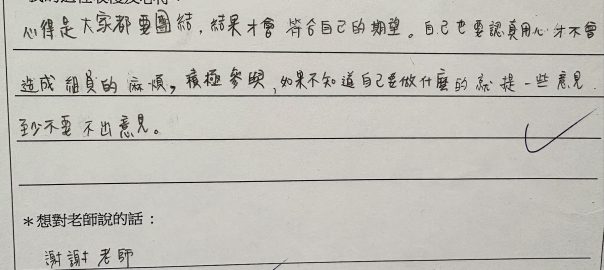 心得是大家都要團結，結果才會符合自己的期望。自己也要認真用心才不會
造成組員的麻煩，積極參與，如果不知道自己要做什麼的就提一些意見
至少不要不出意見。
＊想對老師說的話：
謝謝老師